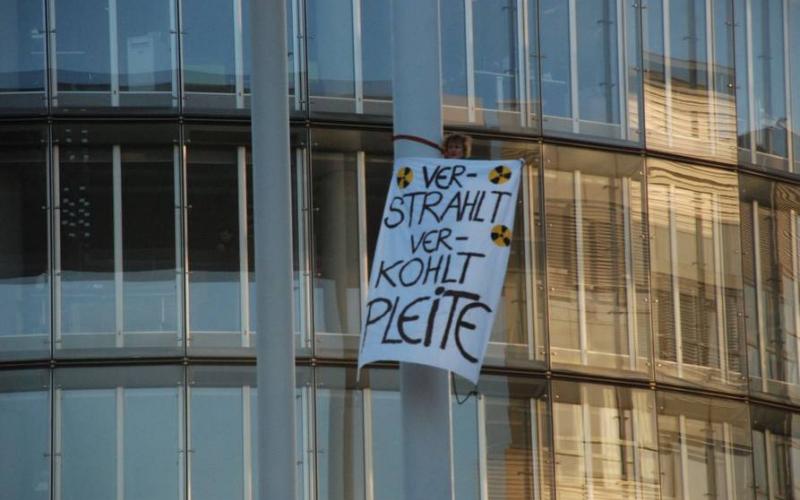 VER-
STRAHLT
VER-
KOHLT
PLEITE